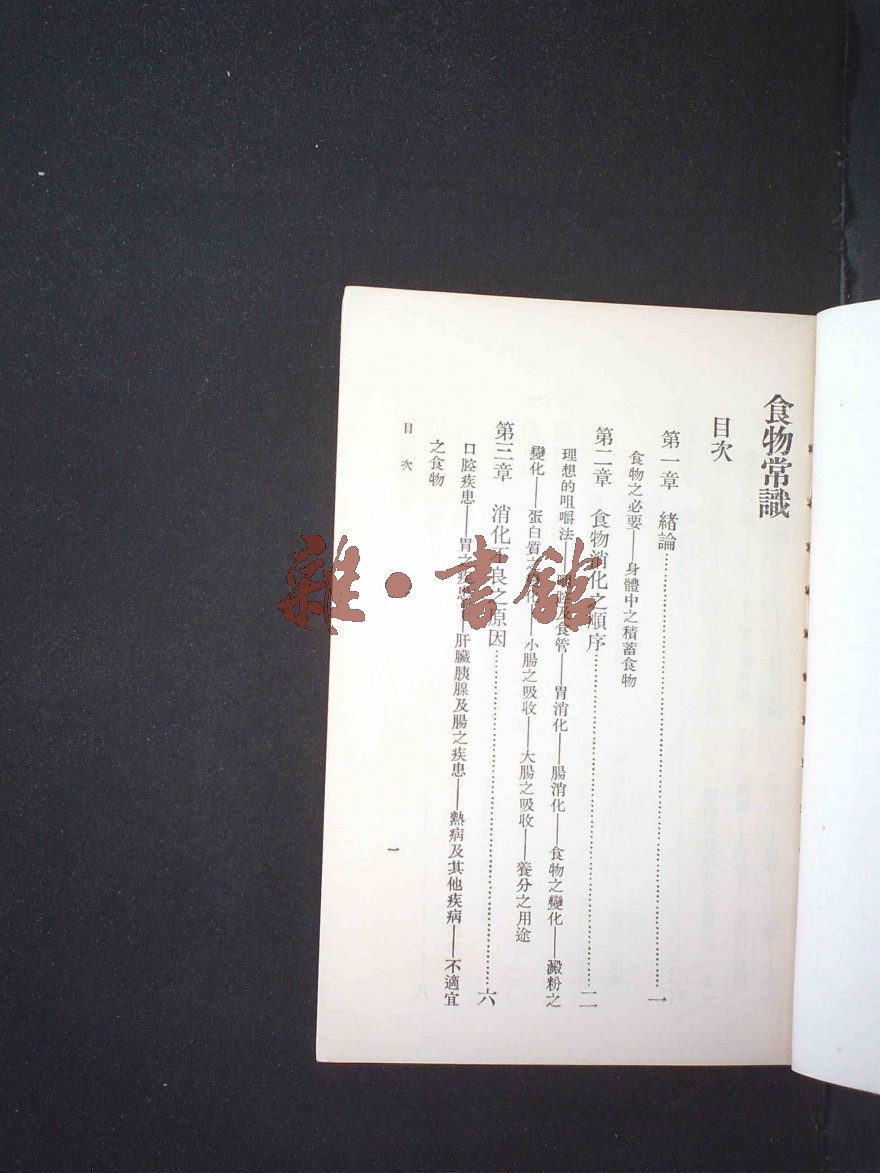 食物常識
目次
第一章　緒論……一
食物之必要——身體中之積蓄食物
第二章　食物消化之順序……二
理想的咀嚼法——及食管——胃消化——腸消化——食物之變化——澱粉之
變化——蛋白質之變化——小腸之吸收——大腸之吸收——養分之用途
第三章　消化不良之原因……六
口腔疾患——胃之疾患——肝臟胰腺及腸之疾患——熱病及其他疾病——不適宜
之食物
目次
一
雜·書館